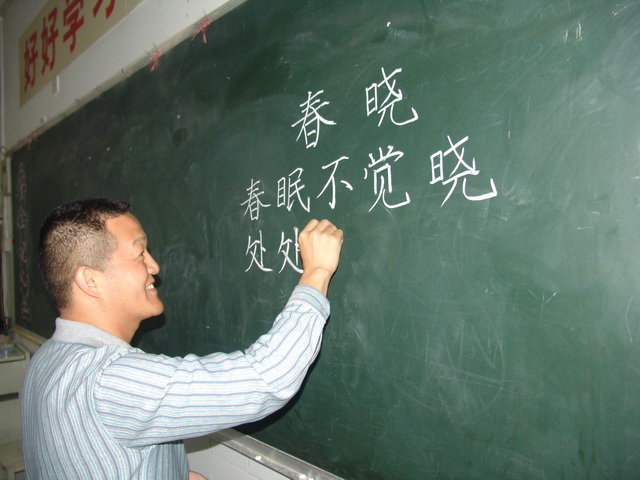 好好学习
春晓
春眠不觉晓
处处